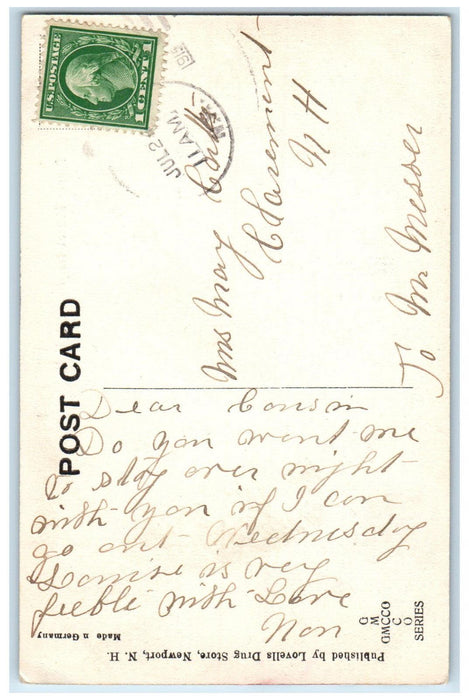 POST CARD
U.S. POSTAGE
1 CENT 1
JUL 2
11 AM
191
Mrs May
Claremont
N H
To Mr Messer
Dear Cousin
Do you want me
to stay over night
with you if I can
go out Wednesday
Louise is very
feeble with Love
Non
G
M
GMCCO
C
O
SERIES
Published by Lovells Drug Store, Newport, N. H.
Made n Germany